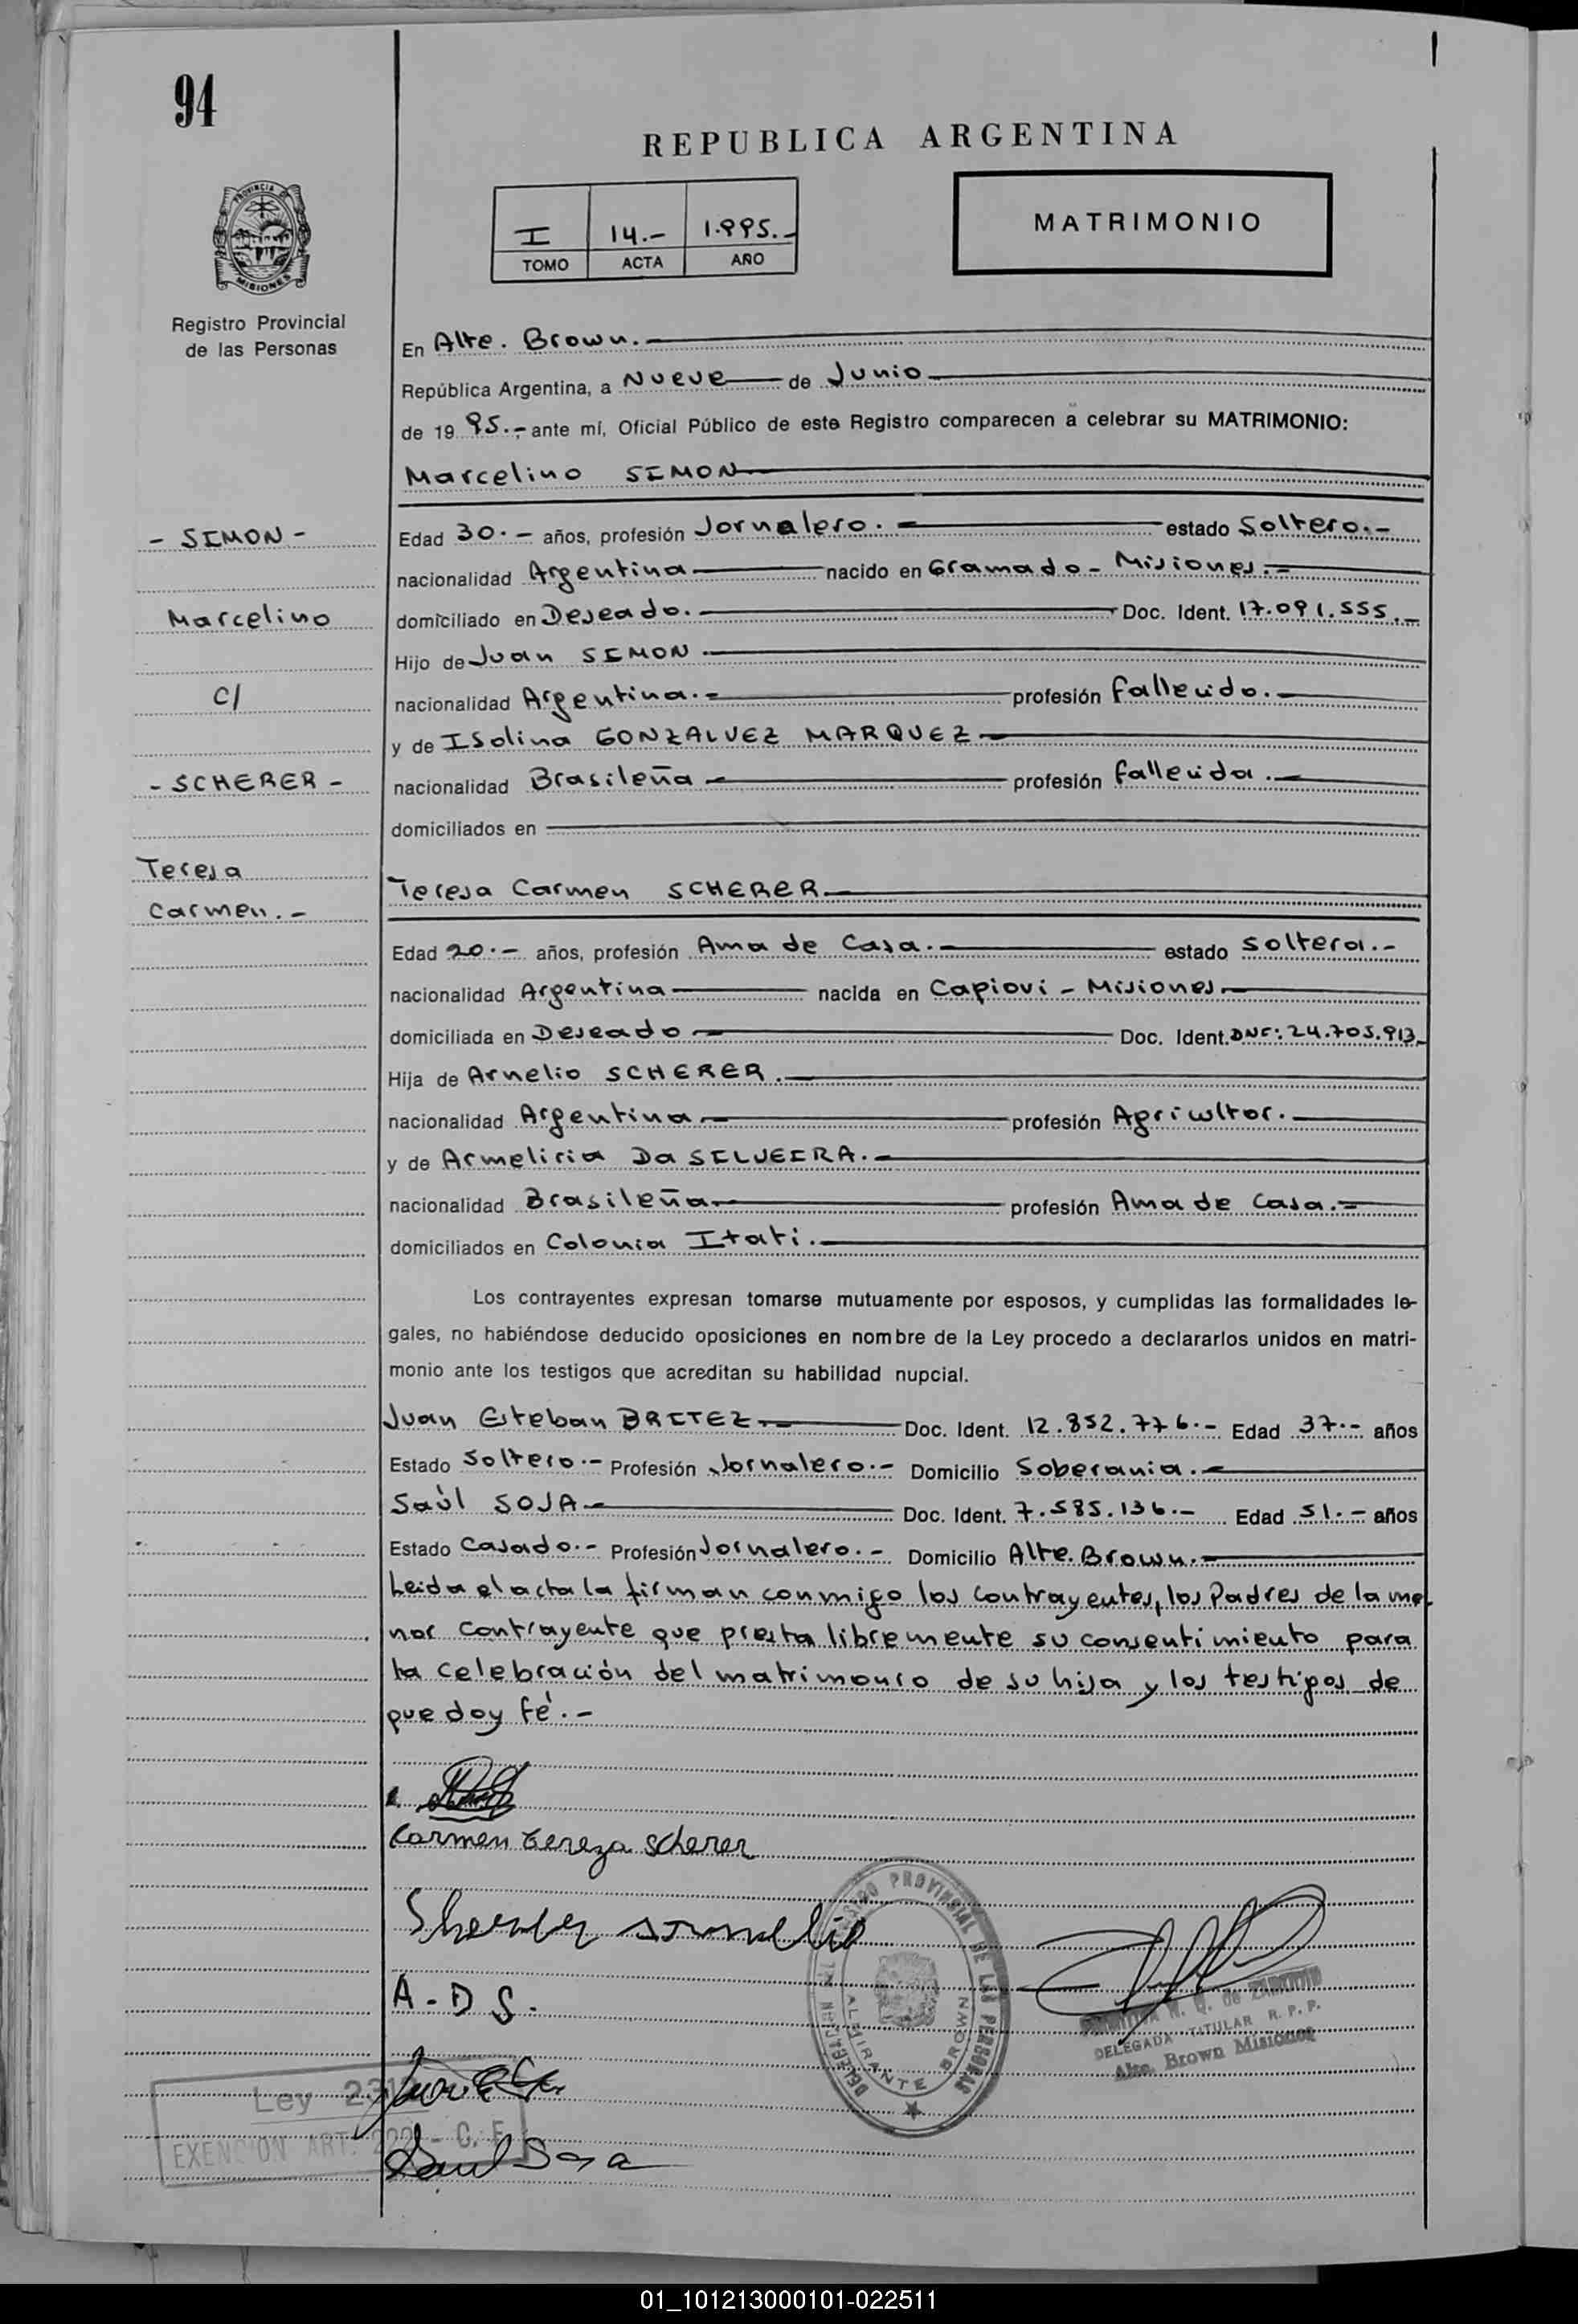 94
REPUBLICA ARGENTINA
I 14.- 1.995.-
TOMO ACTA AÑO
MATRIMONIO
PROVINCIA DE MISIONES
Registro Provincial
de las Personas
En Alte. Brown.-
República Argentina, a Nueve de Junio
de 19 95.- ante mí, Oficial Público de este Registro comparecen a celebrar su MATRIMONIO:
Marcelino SIMON
- SIMON -
Edad 30.- años, profesión Jornalero.- estado Soltero.-
nacionalidad Argentina nacido en Gramado - Misiones.-
Marcelino
domiciliado en Deseado. Doc. Ident. 17.091.555.-
Hijo de Juan SIMON
C/
nacionalidad Argentina.- profesión fallecido.-
y de Isolina GONZALVEZ MARQUEZ-
- SCHERER -
nacionalidad Brasileña- profesión fallecida.-
domiciliados en
Teresa
Carmen.-
Teresa Carmen SCHERER-
Edad 20.- años, profesión Ama de Casa.- estado Soltera.-
nacionalidad Argentina nacida en Capiovi - Misiones-
domiciliada en Deseado- Doc. Ident. DNI: 24.705.913.
Hija de Arnelio SCHERER.-
nacionalidad Argentina- profesión Agricultor.-
y de Armeliria Da SILVEIRA.-
nacionalidad Brasileña- profesión Ama de Casa.-
domiciliados en Colonia Itati.-
Los contrayentes expresan tomarse mutuamente por esposos, y cumplidas las formalidades le-
gales, no habiéndose deducido oposiciones en nombre de la Ley procedo a declararlos unidos en matri-
monio ante los testigos que acreditan su habilidad nupcial.
Juan Esteban BRITEZ.- Doc. Ident. 12.852.776.- Edad 37.- años
Estado Soltero.- Profesión Jornalero.- Domicilio Soberania.-
Saúl SOSA- Doc. Ident. 7.585.136.- Edad 51.- años
Estado Casado.- Profesión Jornalero.- Domicilio Alte. Brown.-
Leida el acta la firman conmigo los contrayentes, los Padres de la me-
nor contrayente que presta libremente su consentimiento para
la celebración del matrimonio de su hija y los testigos de
que doy fé.-
Carmen tereza scherer
A. D S.
REGISTRO PROVINCIAL DE LAS PERSONAS
ALMIRANTE BROWN
N. Q. de
DELEGADA TITULAR R. P. P.
Alte. Brown Misiones
Ley
EXENCION ART.
Saul Sosa
01_101213000101-022511